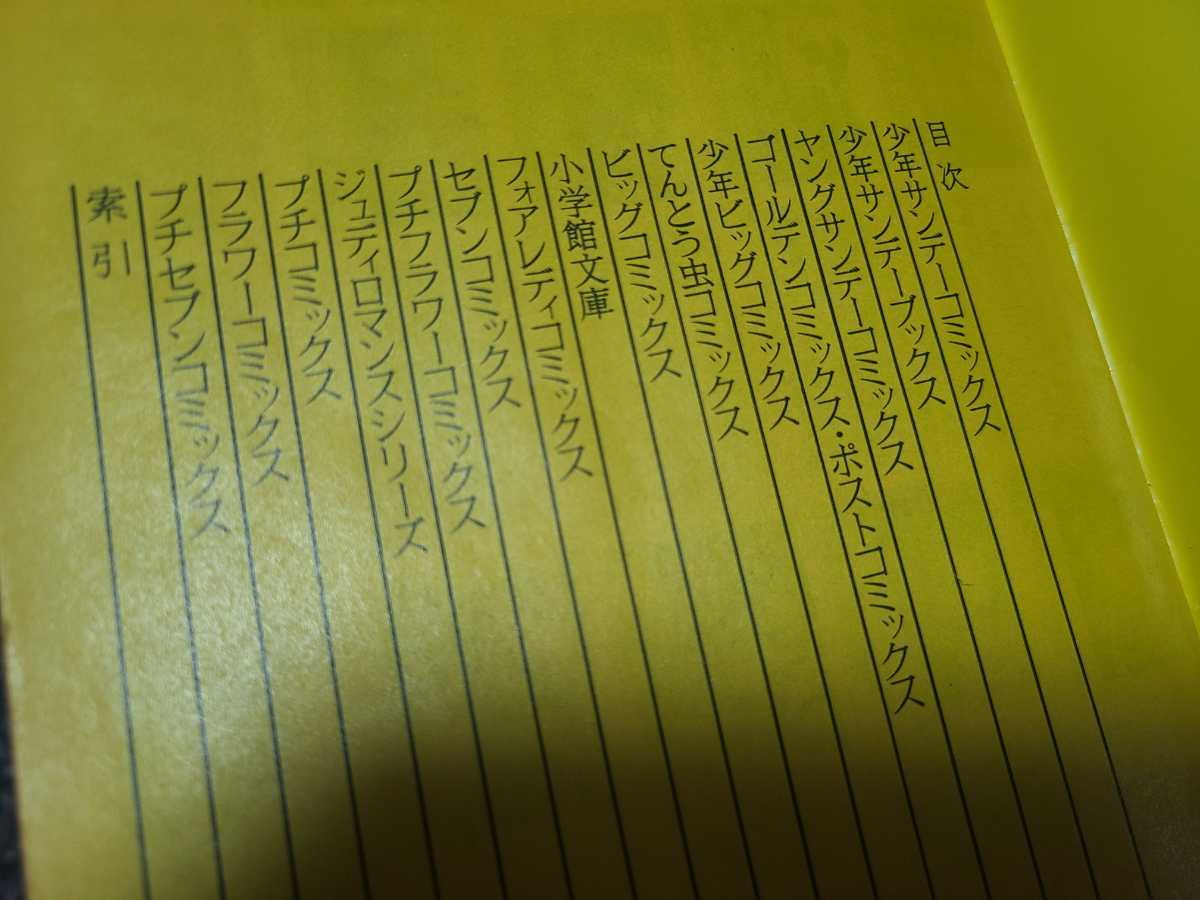 目次
少年サンデーコミックス
少年サンデーブックス
ヤングサンデーコミックス
ゴールデンコミックス・ポストコミックス
少年ビッグコミックス
てんとう虫コミックス
ビッグコミックス
小学館文庫
フォアレディコミックス
セブンコミックス
プチフラワーコミックス
ジュディロマンスシリーズ
プチコミックス
フラワーコミックス
プチセブンコミックス
索引